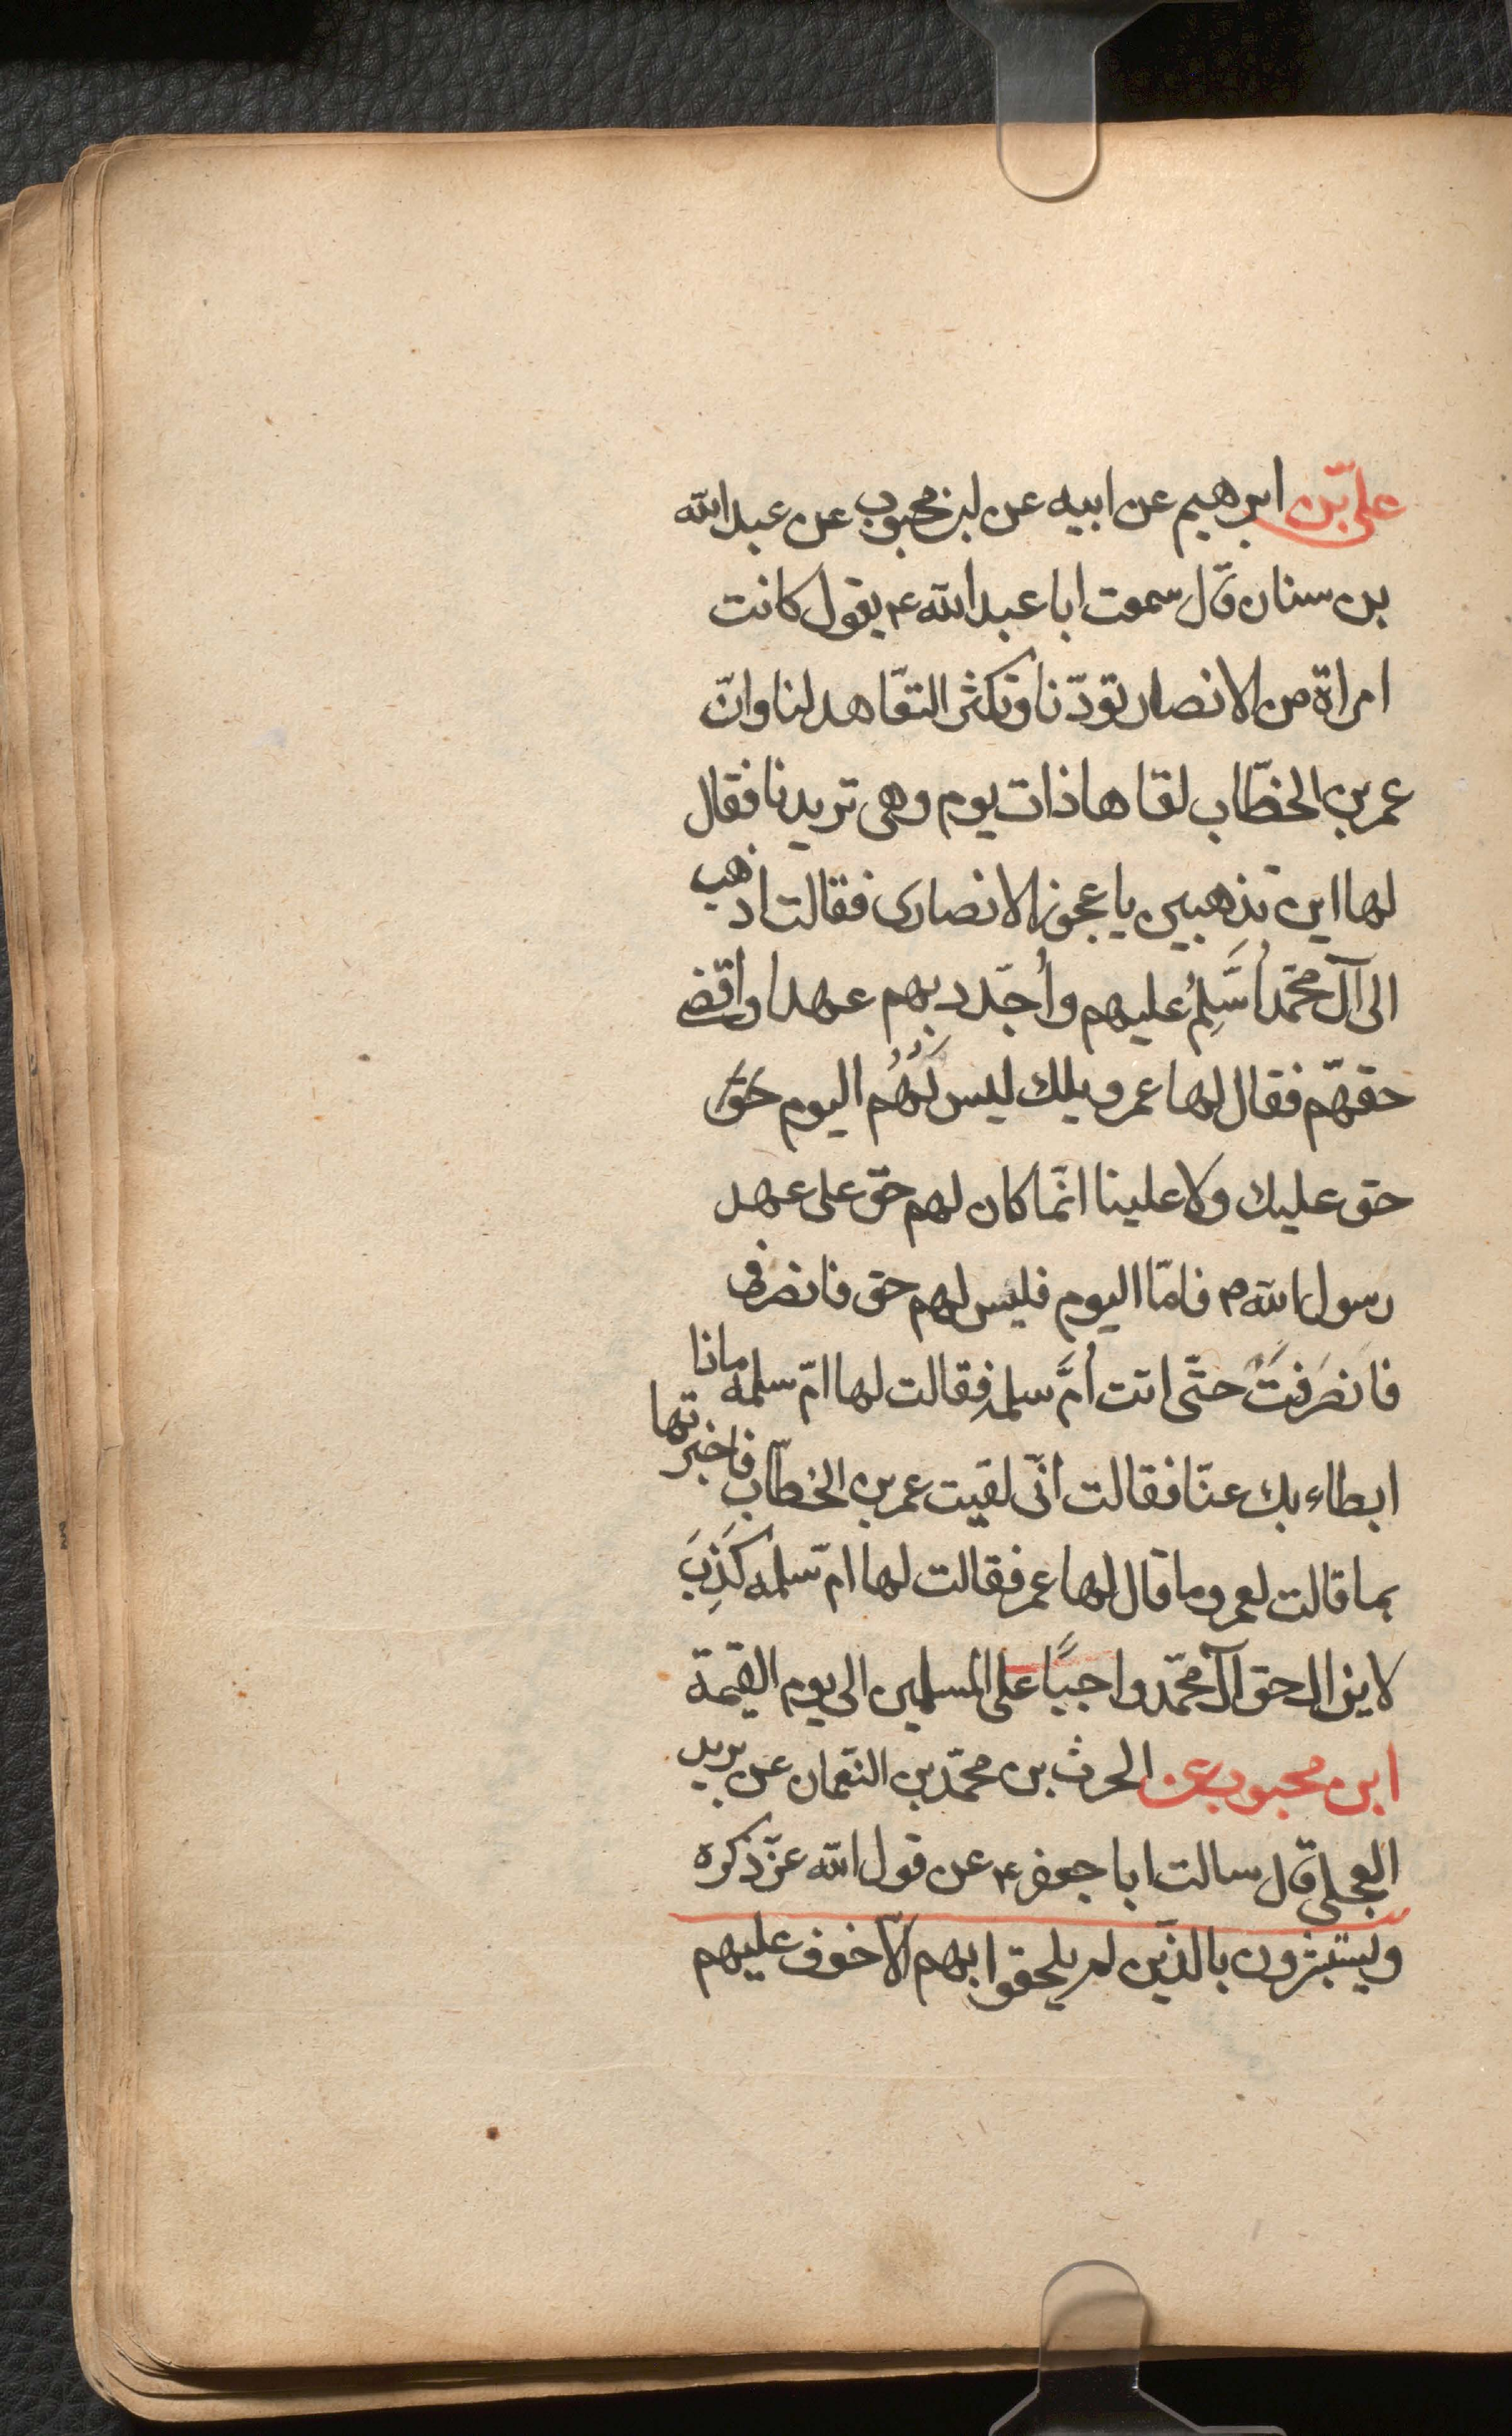 على بن ابرهيم عن ابيه عن ابن محبوب عن عبدالله
بن سنان قال سمعت ابا عبدالله ع يقول كانت
امراة من الانصار تودّنا وتكثر التعاهد لنا وانّ
عمر بن الخطّاب لقاها ذات يوم وهى تريدنا فقال
لها اين تذهبين يا عجوز الانصارى فقالت اذهب
الى آل محمّد اُسَلِّمُ عليهم واُجدّد بهم عهدا واقضى
حقهّم فقال لها عمر ويلك ليس لَهُم اليوم حَقّ
حق عليك ولا علينا انّما كان لهم حقّ على عهد
رسول الله ص فامّا اليوم فليس لهم حق فانصرفى
فانصَرَفَتْ حتّى اتت اُمَّ سلمه فقالت لها امّ سلمه ماذا
ابطاء بك عنّا فقالت انّى لقيت عمر بن الخطّاب فاخبرتها
بما قالت لعمر وما قال لها عمر فقالت لها امّ سلمه كَذِبَ
لا يزال حق آل محمّد واجبًا على المسلمين الى يوم القيمة
ابن محبوب عن الحرث بن محمّد بن النعّمان عن بريد
العجلى قال سالت ابا جعفر ع عن قول الله عزّ ذكره
ويستبشرون بالذّين لم يلحقوا بهم الاّ خوف عليهم